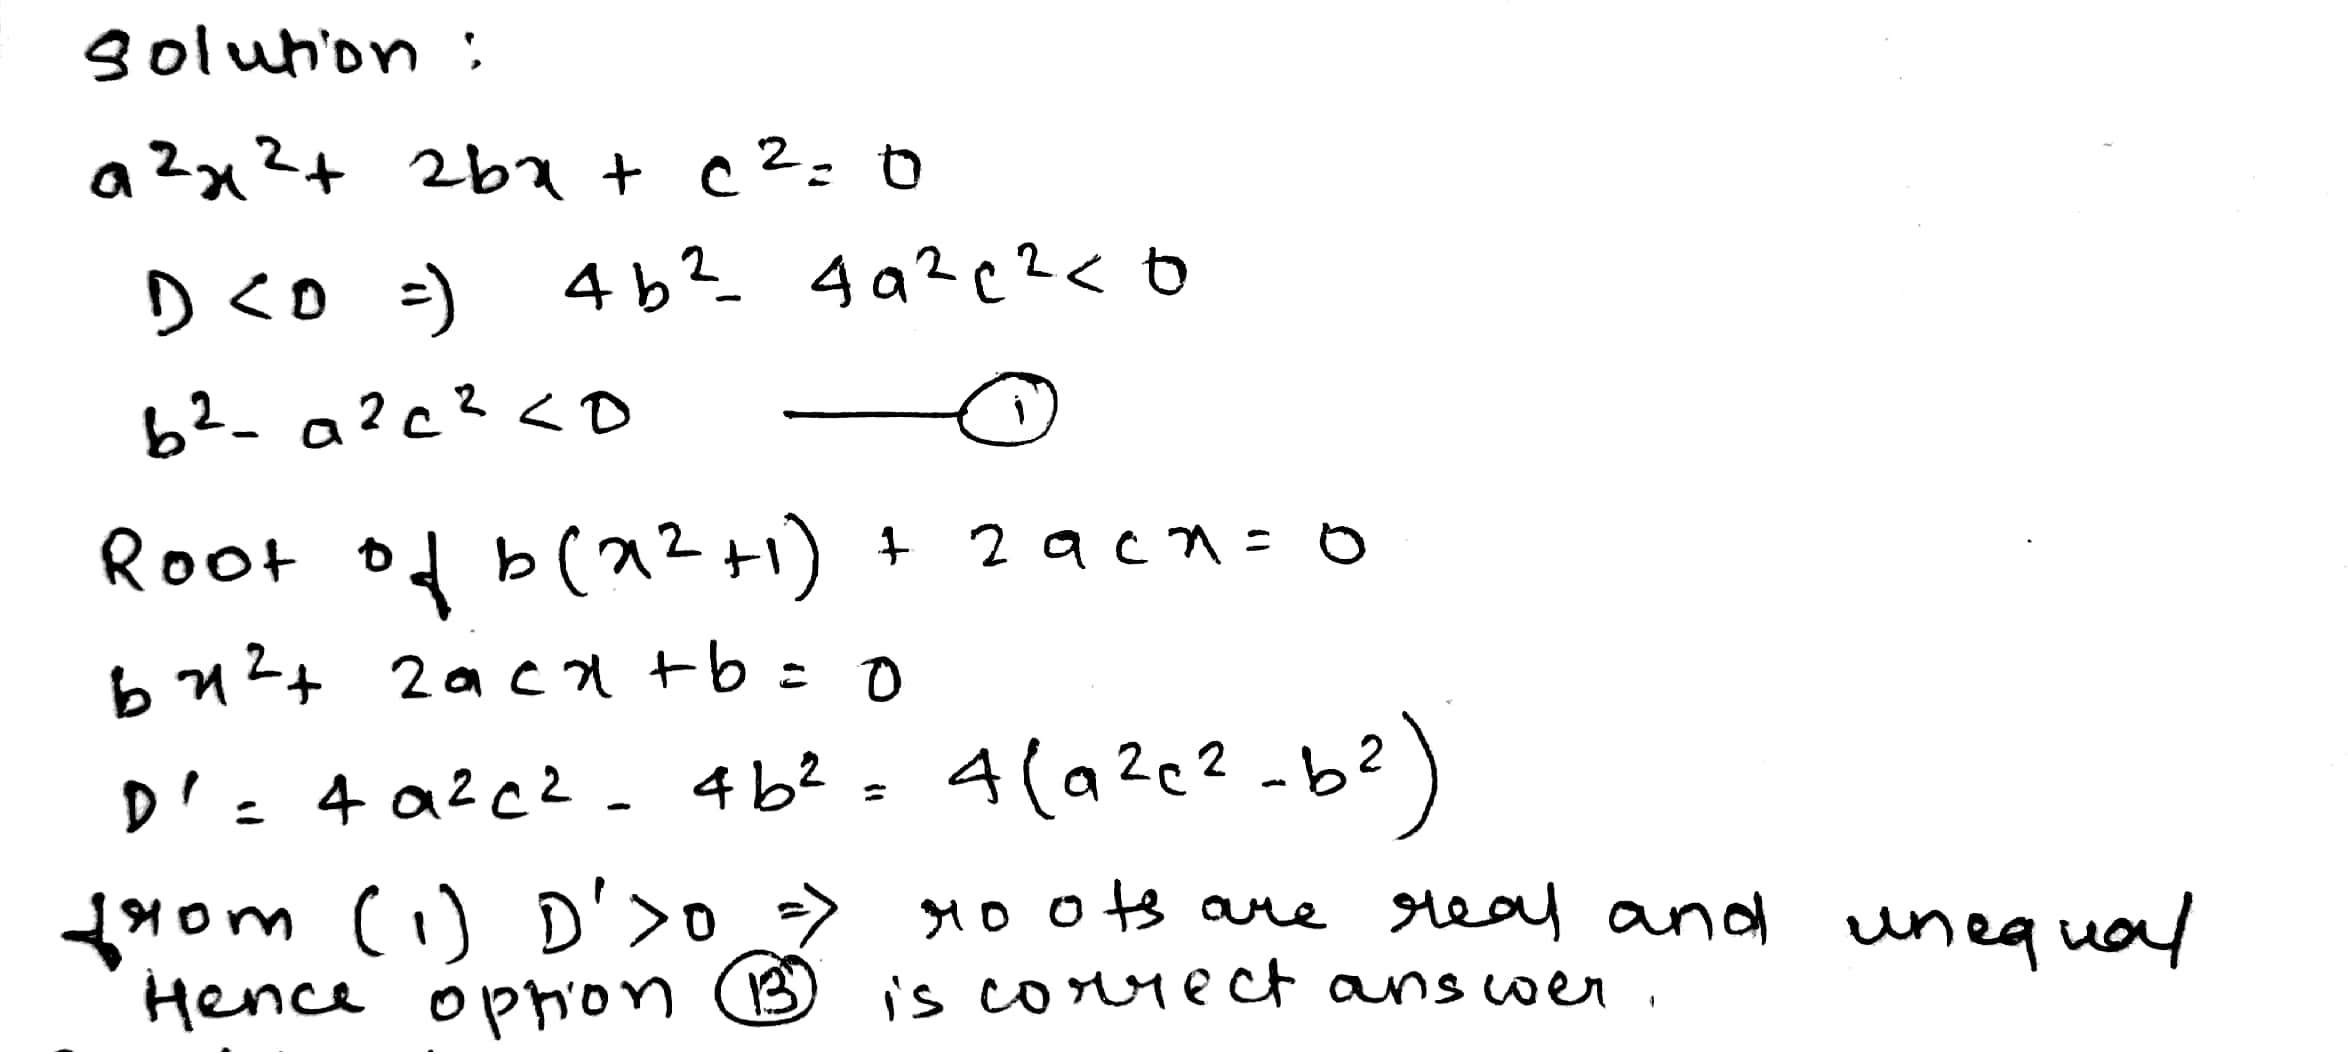 Solution :
a²x² + 2bx + c² = 0
D < 0 => 4b² - 4a²c² < 0
b² - a²c² < 0 —— (1)
Root of b(x² + 1) + 2acx = 0
bx² + 2acx + b = 0
D' = 4a²c² - 4b² = 4(a²c² - b²)
from (1) D' > 0 => roots are real and unequal
Hence option (B) is correct answer.